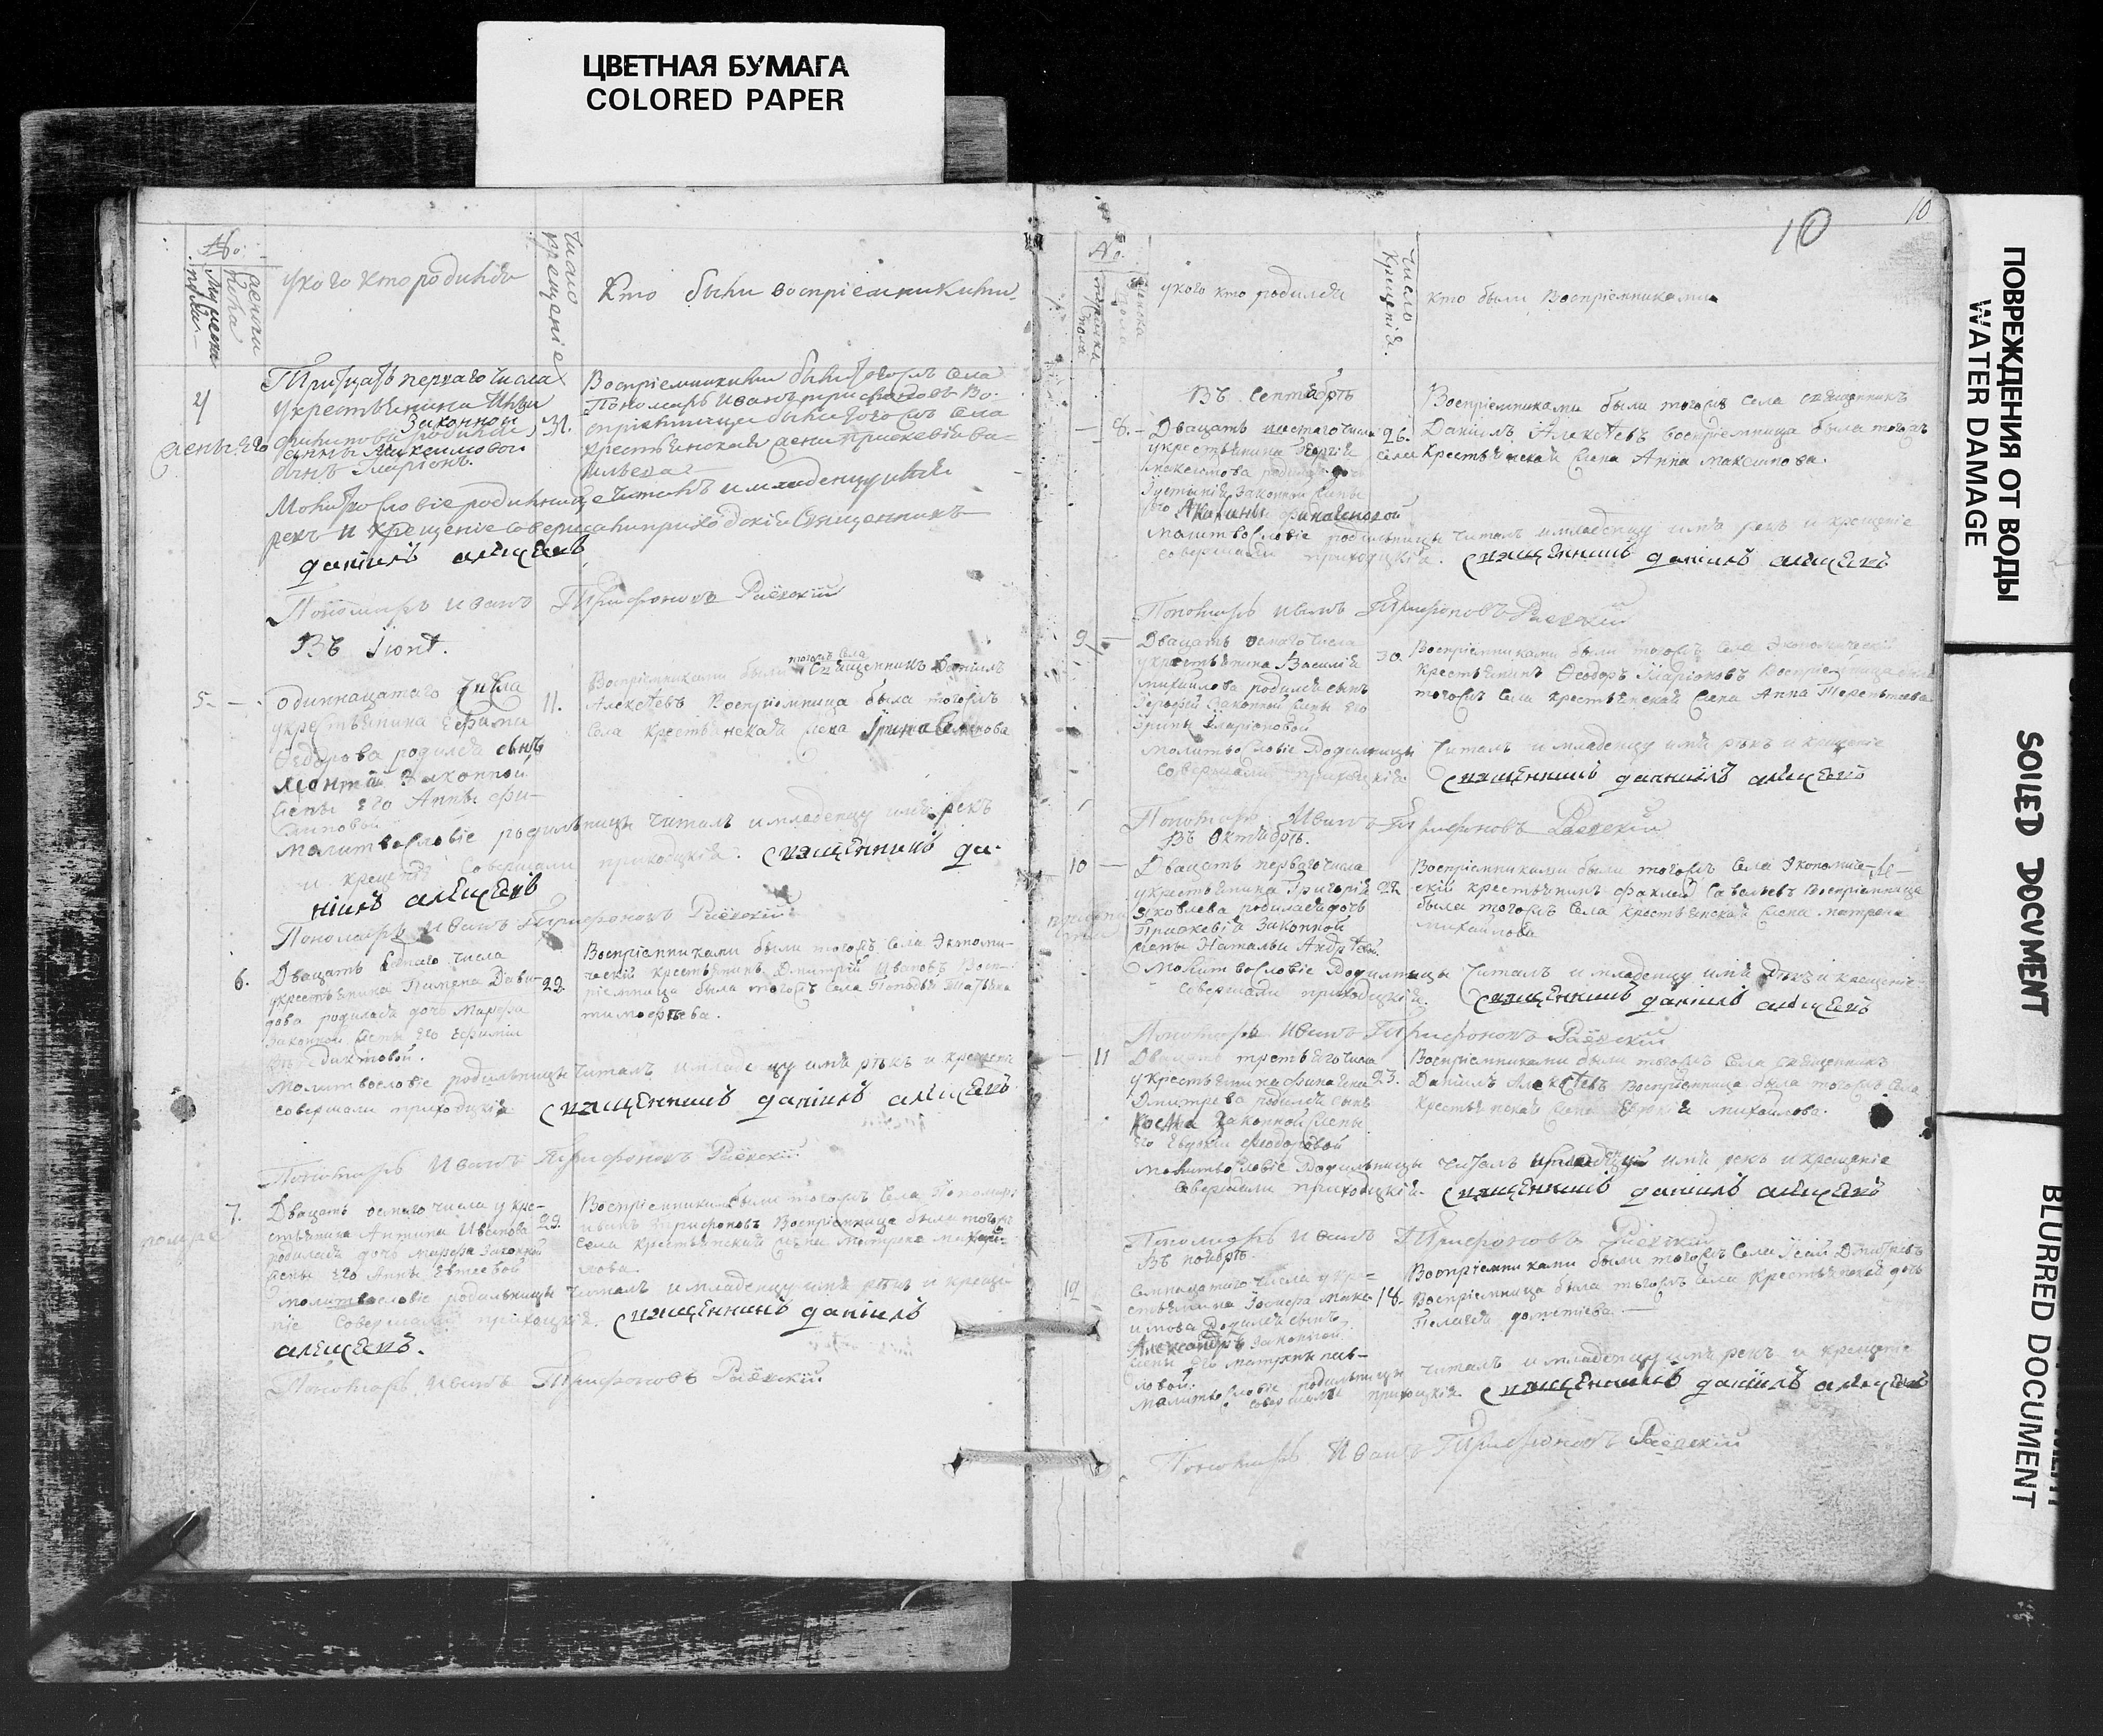 ЦВЕТНАЯ БУМАГА
COLORED PAPER
ПОВРЕЖДЕНИЯ ОТ ВОДЫ
WATER DAMAGE
SOILED DOCUMENT
BLURRED DOCUMENT
№
Мужеска
пола
женска
у кого кто родился
число
крещенiе
Кто были восприемниками
4
Тритцать перваго числа
у крестьянина
законной
31.
Анны Максимовой
сынъ Иларiонъ.
Восприемниками были тогожъ села
Пономарь Иванъ Трифоновъ Во-
спрiемница была тогожъ села
крестьянская жена Прискевiя Ва-
сильева
Молитвословiе родильнице читалъ и младенцу имя
рекъ и крещенiе совершали приходскiй Священникъ
данiилъ алеѯеевъ
Пономарь Иванъ Трифоновъ Раевскiй
Въ Iюнѣ.
5.
одиннацатаго числа
у крестьянина Ефима
Ѳедорова родился сынъ
Леонтiй законной
жены его Анны Фи-
липовой
11.
Восприемниками были тогожъ села Священникъ Данiилъ
Алексѣевъ Восприемница была тогожъ
села крестьянская жена Iрина
Молитвословiе родильницы читалъ и младенцу имя рекъ
и крещенiе совершали приходцкiй. священникъ да-
нiилъ алеѯеевъ
Пономарь Иванъ Трифоновъ Раевскiй
6.
Двацать числа
у крестьянина Пимена Дави-
дова родилась дочь Марѳа
законной жены его Ефимiи
22.
Восприемниками были тогожъ села Экономи-
ческiй крестьянинъ Дмитрiй Ивановъ Восп-
рiемница была тогожъ села Попадья Татьяна
тимофѣева.
Молитвословiе родильницы читалъ и младенцу имя рѣкъ и крещенiе
совершали приходцкiй священникъ данiилъ алеѯеевъ
Пономарь Иванъ Трифоновъ Раевскiй
7.
Двацать осмаго числа у кре-
стьянина Антипа Иванова
родилась дочь Марѳа законной
жены его Анны Евтеевой
29.
Восприемниками были тогожъ села Пономарь
иванъ Трифоновъ Восприемница была тогожъ
села крестьянская жена Матрена
Молитвословiе родильницы читалъ и младенцу имя рекъ и креще-
нiе совершали приходцкiй. священникъ данiилъ
алеѯеевъ.
Пономарь Иванъ Трифоновъ Раевскiй
10
10
№
мужска
пола
женска
пола
у кого кто родился
Число
крещенiя.
кто были Восприемниками
Въ Септябрѣ
8.
Двацать шестаго числа
у крестьянина Георгiя
родилась дочь
Iустинiя законной жены
его Акилины
26.
Восприемниками были тогожъ села священникъ
Данiилъ Алексѣевъ восприемница была тогожъ
села Крестьянская жена Анна Максимова.
Молитвословiе родильницы читалъ и младенцу имя рекъ и крещенiе
совершали приходцкiй. священникъ данiилъ алеѯеевъ
Пономарь Иванъ Трифоновъ Раевскiй
9
Двацать осмаго числа
у крестьянина Василiя
Михайлова родился сынъ
Iерофей законной жены его
Iрины Iларiоновой
30.
Восприемниками были тогожъ села Экономическiй
Крестьянинъ Ѳеодоръ Iларiоновъ Восприемница была
тогожъ села крестьянская жена Анна Терентьева
Молитвословiе Родильницы Читалъ и младенцу имя рѣкъ и крещенiе
совершали приходцкiй священникъ данiилъ алеѯеевъ
Пономарь Иванъ Трифоновъ Раевскiй
Въ Октябрѣ.
10
Двацать перваго числа
у крестьянина Григорiя
Яковлева родилась дочь
Приѳкевiя законной
жены Натальи Андрѣевой
Восприемниками были тогожъ села Экономиче-
скiй крестьянинъ Савельевъ Восприемница
была тогожъ села крестьянская жена Матрена
михайлова
Молитвословiе Родильницы читалъ и младенцу имя рекъ и крещенiе
совершали приходцкiй. священникъ данiилъ алеѯеевъ
Пономарь Иванъ Трифоновъ Раевскiй
11
Двацать третьяго числа
у крестьянина
Дмитрева родился сынъ
Косма законной жены
его Евдокiи Ѳеодоровой
23.
Восприемниками были тогожъ села священникъ
Данiилъ Алексѣевъ Восприемница была тогожъ села
Крестьянская жена Евдокiя Михайлова.
Молитвословiе Родильницы читалъ и младенцу имя рекъ и крещенiе
совершали приходцкiй. священникъ данiилъ алеѯеевъ
Пономарь Иванъ Трифоновъ Раевскiй
Въ ноябрѣ.
12
Семнацатаго числа у кре-
стьянина
родился сынъ
Александръ законной
жены его Матрены пав-
ловой.
18.
Восприемниками были тогожъ села Дмитревъ
Восприемница была тогожъ села Крестьянская дочь
Пелагея
Молитвословiе родильницы читалъ и младенцу имя рекъ и крещенiе
совершалъ приходцкiй священникъ данiилъ алеѯеевъ
Пономарь Иванъ Трифоновъ Раевскiй